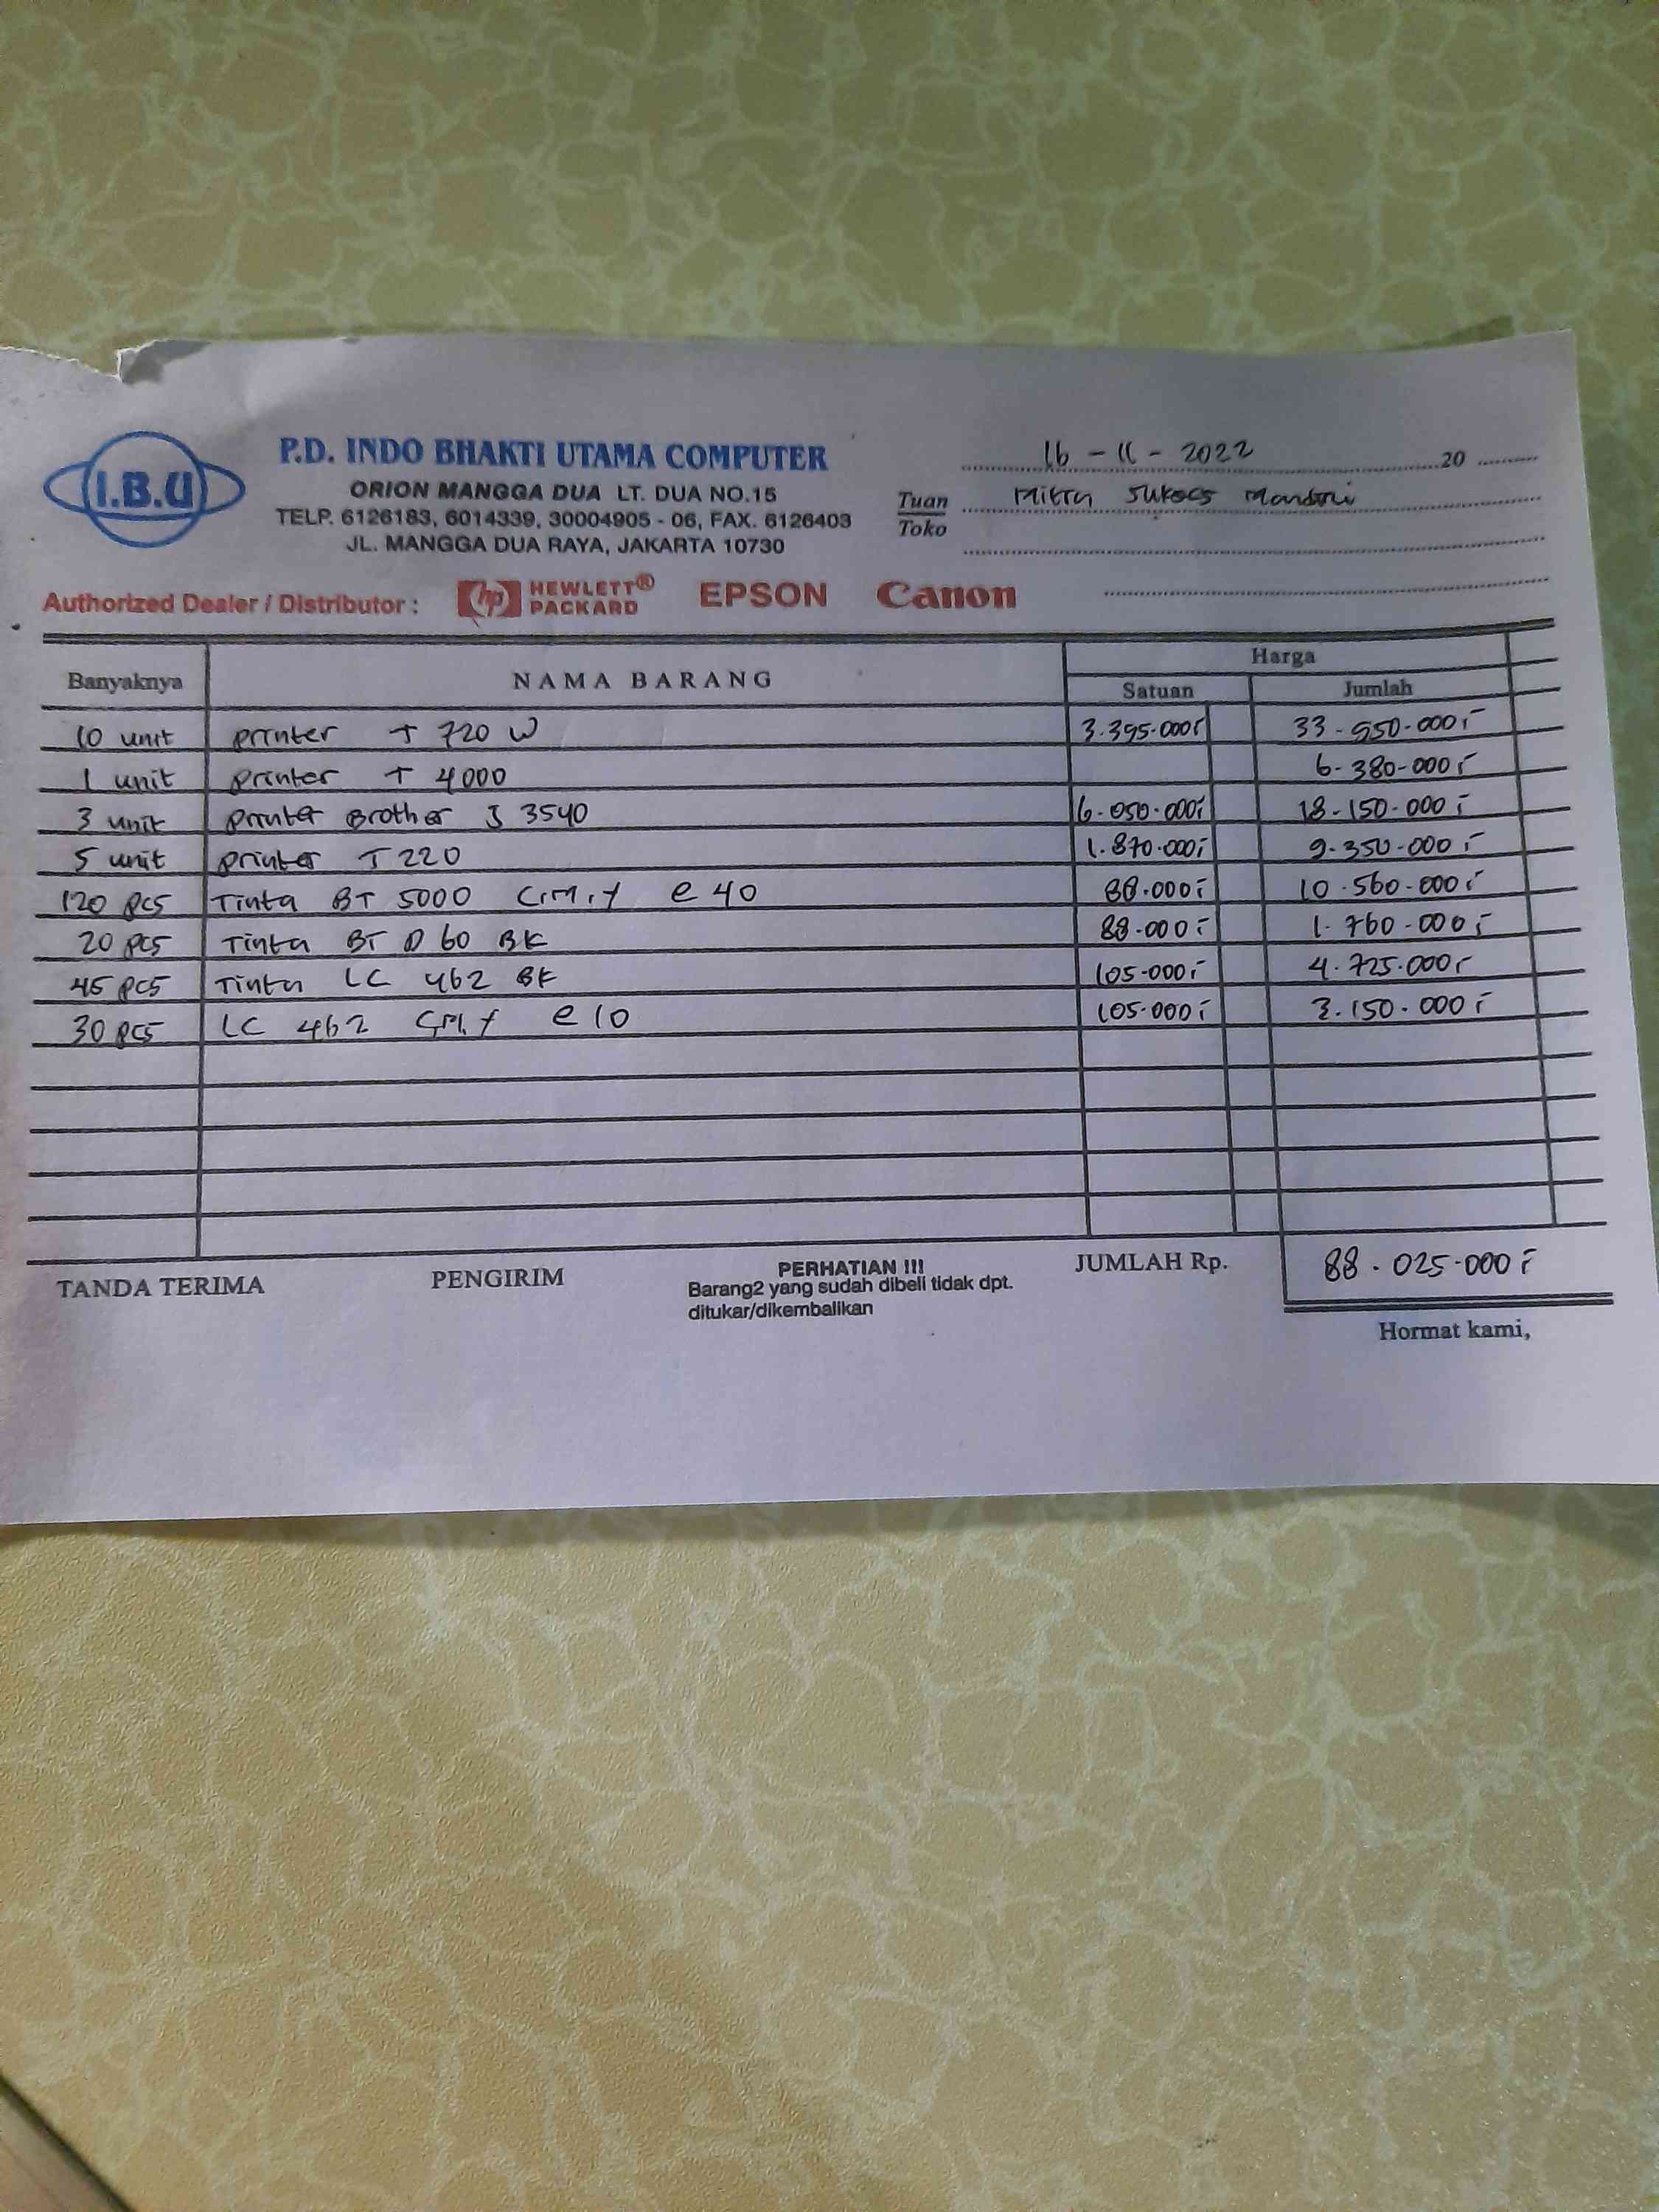 I.B.U
P.D. INDO BHAKTI UTAMA COMPUTER
ORION MANGGA DUA LT. DUA NO.15
TELP. 6126183, 6014339, 30004905 - 06, FAX. 6126403
JL. MANGGA DUA RAYA, JAKARTA 10730
16 - 11 - 2022 20
Tuan Mitra Sukses Mandiri
Toko
Authorized Dealer / Distributor : hp HEWLETT® PACKARD EPSON Canon
Banyaknya NAMA BARANG Harga
Satuan Jumlah
10 unit printer T 720 W 3.395.000,- 33.950.000,-
1 unit printer T 4000 6.380.000,-
3 unit printer Brother J 3540 6.050.000,- 18.150.000,-
5 unit printer T 220 1.870.000,- 9.350.000,-
120 pcs Tinta BT 5000 C,M,Y @ 40 88.000,- 10.560.000,-
20 pcs Tinta BT D 60 BK 88.000,- 1.760.000,-
45 pcs Tinta LC 462 BK 105.000,- 4.725.000,-
30 pcs LC 462 C,M,Y @ 10 105.000,- 3.150.000,-
TANDA TERIMA PENGIRIM PERHATIAN !!! JUMLAH Rp. 88.025.000,-
Barang2 yang sudah dibeli tidak dpt.
ditukar/dikembalikan
Hormat kami,